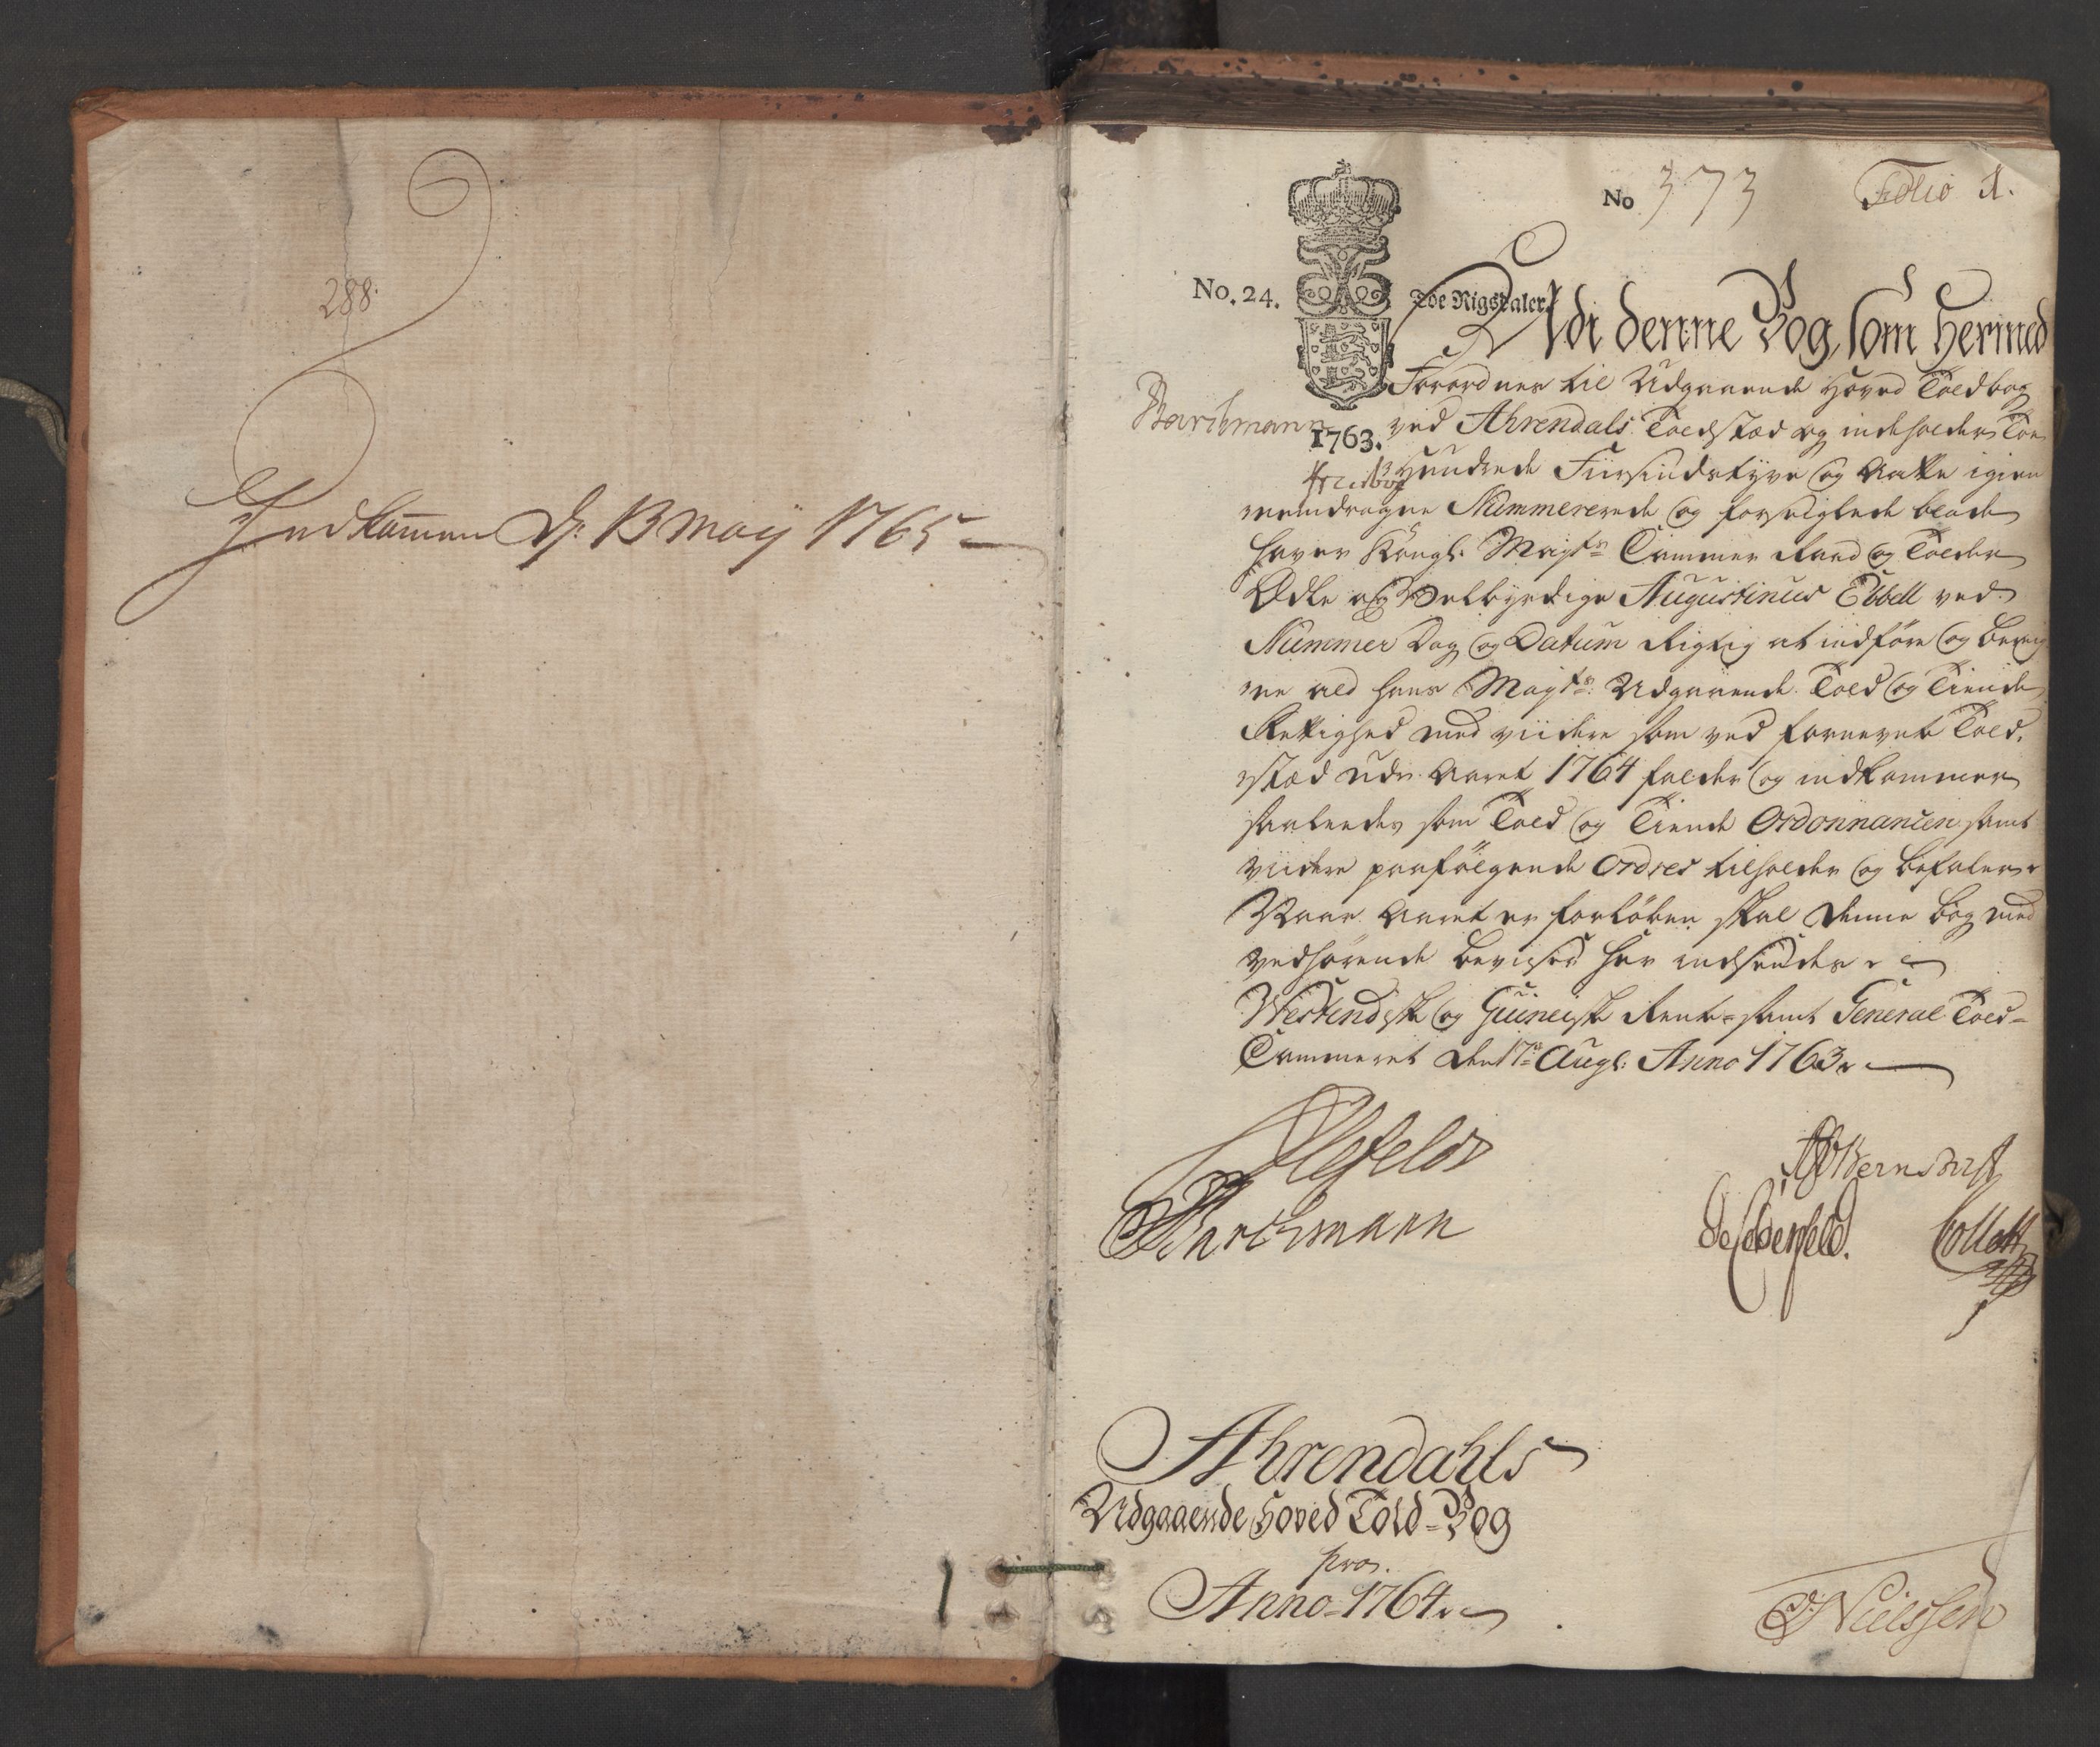 288.
Indkommen d. 13 May 1765
No 373
Folio 1.
No. 24.
Toe Rigsdaler.
Udi denne Bog, som hermed
Forordnes til Udgaaende Hoved Toldbog
Barchmann
1763.
ved Ahrendals Toldstæd og indeholder Toe
Hundrede Fiirsindstyve og Aatte igien
nemdragne Nummererede og forseiglede blade
haver Kongl. Mayts Cammer Raad og Tolder
Ædle og Velbyrdige Augustinus Ebbell ved
Nummer Dag og Datum Rigtig at indføre og bereig
ne ald hans Mayts Udgaaende Told og Tiende
Rettighed med viidere som ved forneunte Told,
stæd udi Aaret 1764 falder og indkommer
saaledes som Told og Tiende Ordonnancen samt
viidere paafølgende Ordres tilholder og befaler.
Naar Aaret er forløben skal denne bog med
vedhørende beviser her indsendes.
Westindiske og Guineiske Rente- samt General Told-
Cammeret den 17 Augs: Anno 1763.
Ahlefeldt
Bernstorff
Barchmann
Collett
Ahrendahls
Udgaaende Hoved Told-Bog
pro.
Anno 1764.
Nielssen